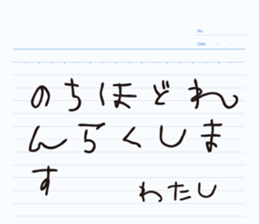 No.
Date ・ ・
のちほどれ
んらくしま
す
わたし